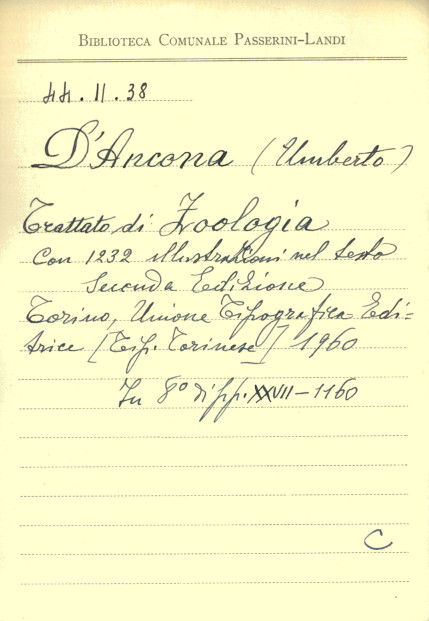 BIBLIOTECA COMUNALE PASSERINI-LANDI
44.II.38
D'Ancona (Umberto)
Trattato di Zoologia
Con 1232 illustrazioni nel testo
Seconda Edizione
Torino, Unione Tipografica Edi=
trice [Tip. Torinese] 1960
In 8° di pp. XXVII-1160
C